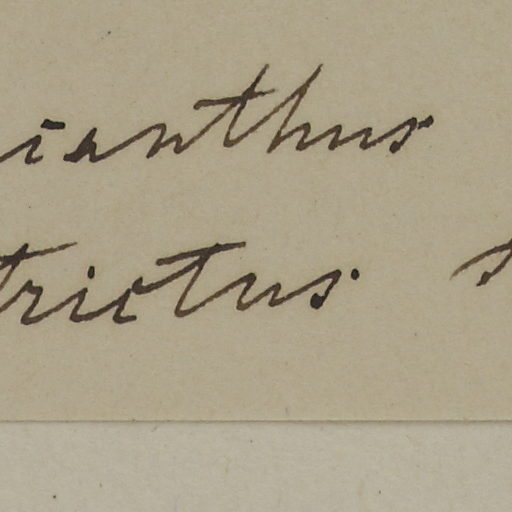 ianthus
trictus s